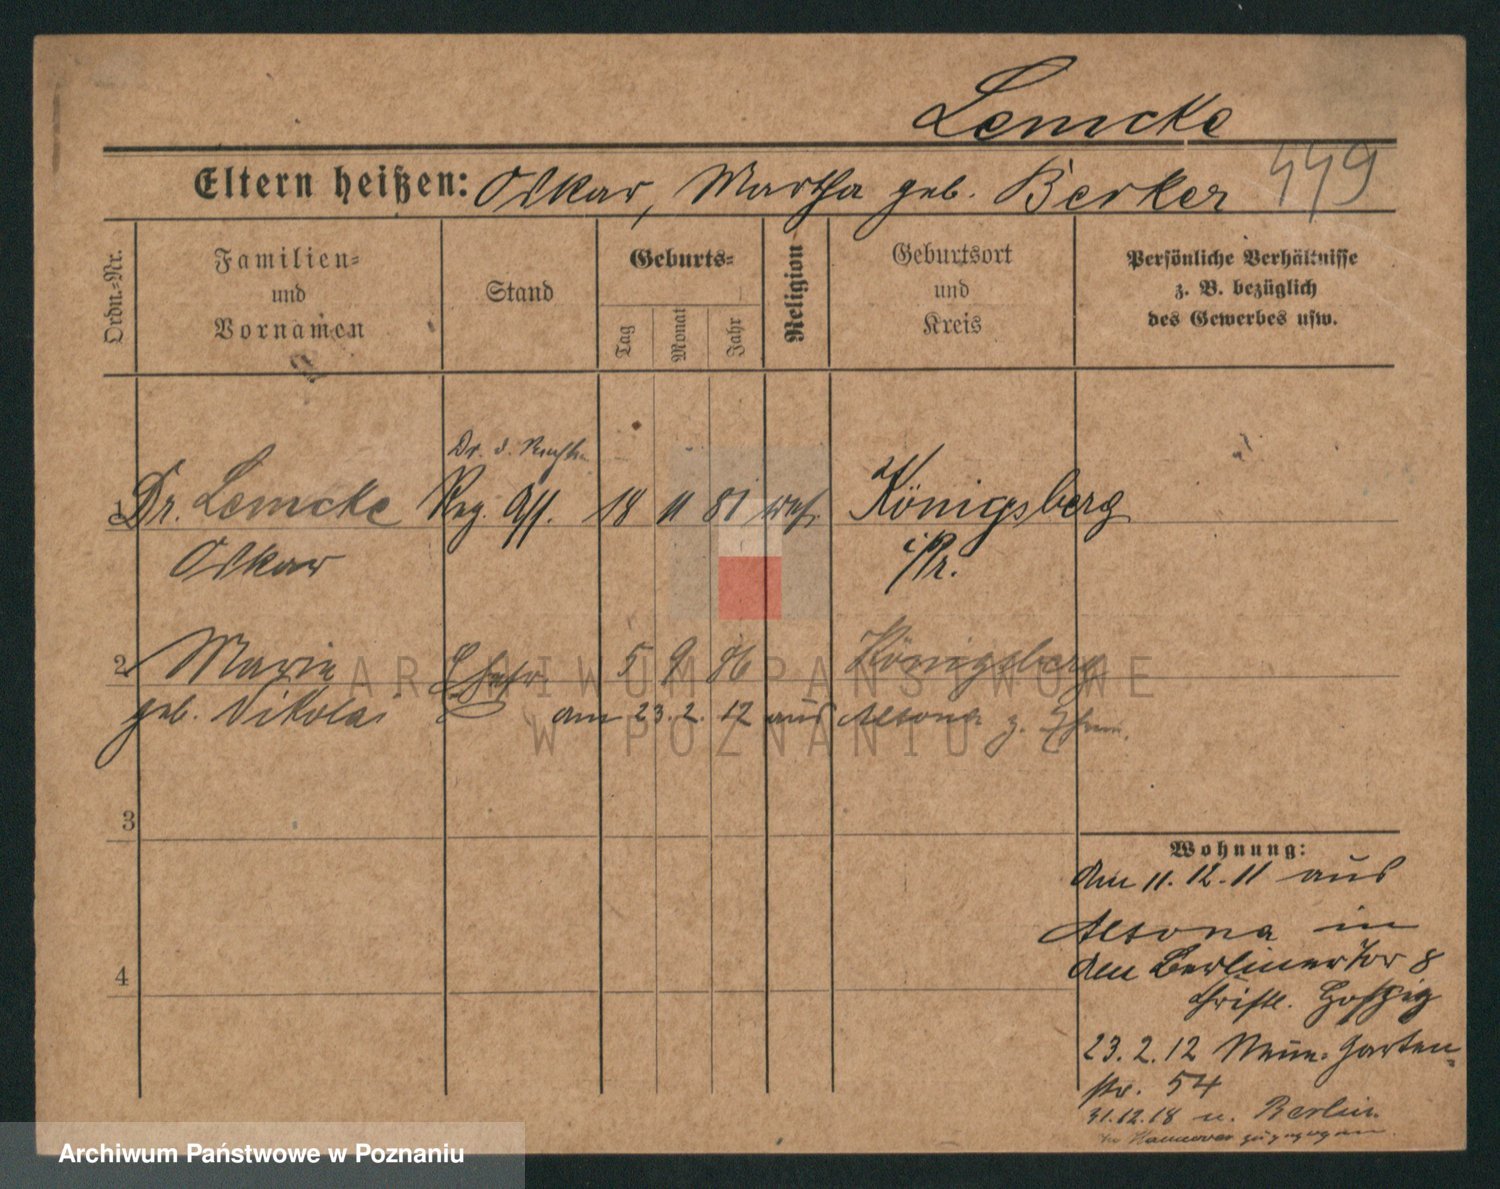 Lemcke
Eltern heißen: Oskar, Martha geb. Berker 449
Ordn.-Nr.
Familien-
und
Vornamen
Stand
Geburts-
Tag
Monat
Jahr
Religion
Geburtsort
und
Kreis
Persönliche Verhältnisse
z. B. bezüglich
des Gewerbes usw.
Dr. d. Rechte
1 Dr. Lemcke Reg. Ass. 18 11 81 Königsberg
Oskar i/Pr.
2 Marie Ehefr. 5 9 86 Königsberg
geb. Nikolai am 23. 2. 12 aus Altona z. Ehem.
3
4
Wohnung:
Am 11. 12. 11 aus
Altona in
Am Berliner Tor 8
Christl. Hospiz
23. 2. 12 Neue Garten-
str. 54
31.12.18 n. Berlin
Hannover zugezogen.
ARCHIWUM PAŃSTWOWE
W POZNANIU
Archiwum Państwowe w Poznaniu